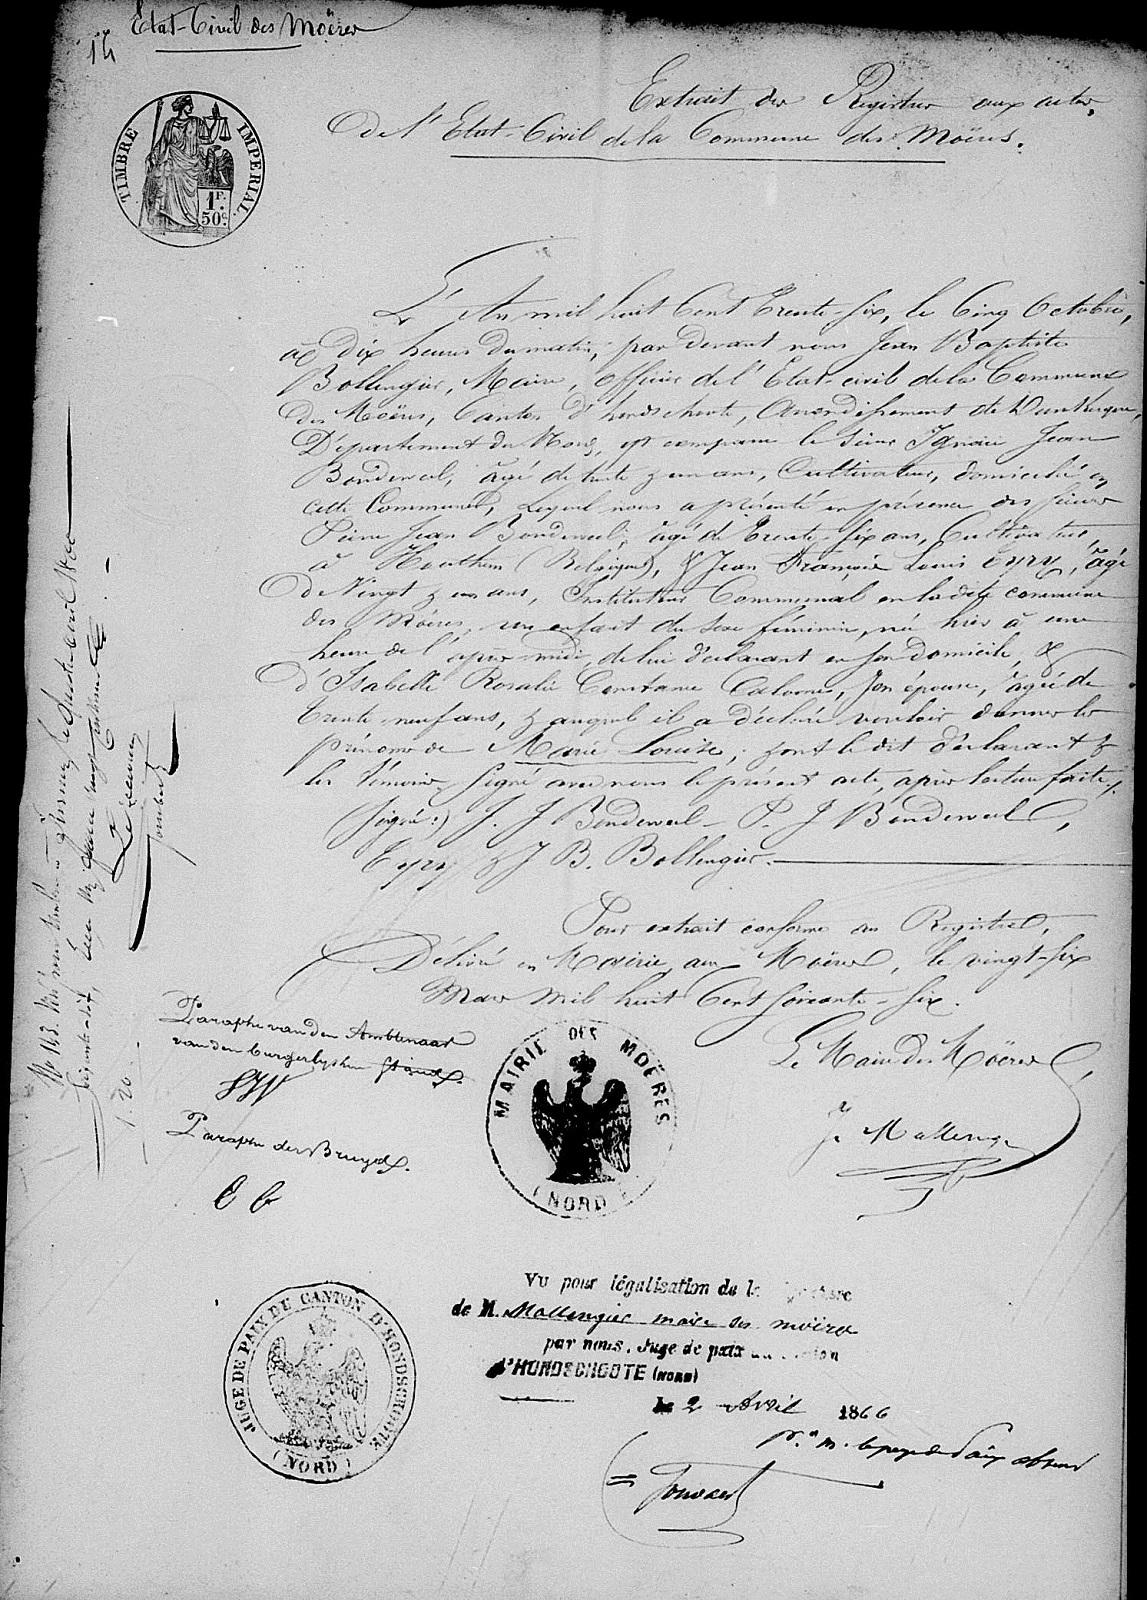 14
Etat-Civil des Moëres
TIMBRE IMPERIAL
1F.
50c.
Extrait des Registres aux actes
de l'Etat-Civil de la Commune des Moëres.
L'An mil huit Cent Trente-six, le Cinq Octobre,
à dix heures du matin, par devant nous Jean Baptiste
Bollengier, Maire, Officier de l'Etat-civil de la Commune
des Moëres, Canton d'hondschoote, Arrondissement de Dunkerque,
Département du Nord, est comparu le sieur Ignace Jean
Bondeweel, âgé de trente & un ans, Cultivateur, domicilié en
cette Commune, Lequel nous a présenté en présence des sieurs
Pierre Jean Bondeweel, âgé de Trente-six ans, Cultivateur
à Houthem (Belgique), & Jean François Louis Eyry, âgé
de Vingt & un ans, Instituteur Communal en la dite commune
des Moëres, un enfant du sexe féminin, née hier à une
heure de l'après-midi, de lui déclarant en son domicile, &
d'Isabelle Rosalie Constance Calonne, son épouse, âgée de
trente neuf ans, & auquel il a déclaré vouloir donner les
prénoms de Marie Louise; sont le dit déclarant &
les témoins signé avec nous le présent acte, après lecture faite.
(signé:) J. J Bondeweel P. J Bondeweel,
Eyry & J B. Bollengier.
Pour extrait conforme au Registre,
Délivré en Mairie aux Moëres, le vingt-six
Mars mil huit Cent soixante-six.
Le Maire des Moëres,
Paraphe van den Ambtenaar
van den burgerlyken stand.
Paraphe der Bruyd.
MAIRIE DES MOËRES
(NORD)
JUGE DE PAIX DU CANTON D'HONDSCHOOTE
(NORD)
Vu pour légalisation de la
de M. Mallengier maire des moëres
par nous, Juge de paix
d'HONDSCHOOTE (NORD)
le 2 Avril 1866
pr. m. le juge de Paix absent